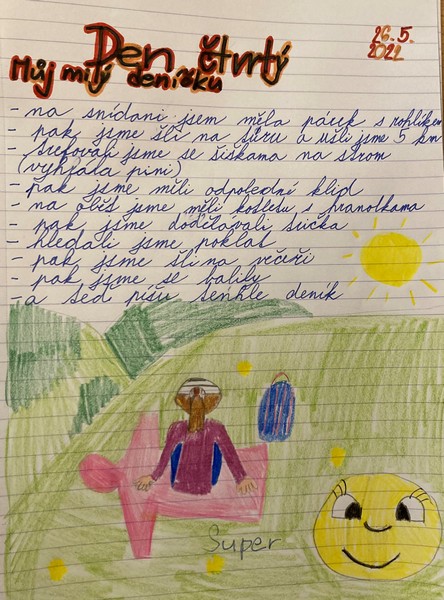 26.5.
2022
Den čtvrtý
Můj milý deníčku
- na snídani jsem měla párek s rohlíkem
- pak jsme šli na túru a ušli jsme 5 km
- Trefovali jsme se šiškama na strom
(vyhrála píní)
- pak jsme měli odpolední klid
- na oběd jsme měli kotletu s hranolkama
- pak jsme dodělávali trička
- hledali jsme poklat
- pak jsme šli na večeři
- pak jsme se balily
- a teď píšu tenhle deník
Super